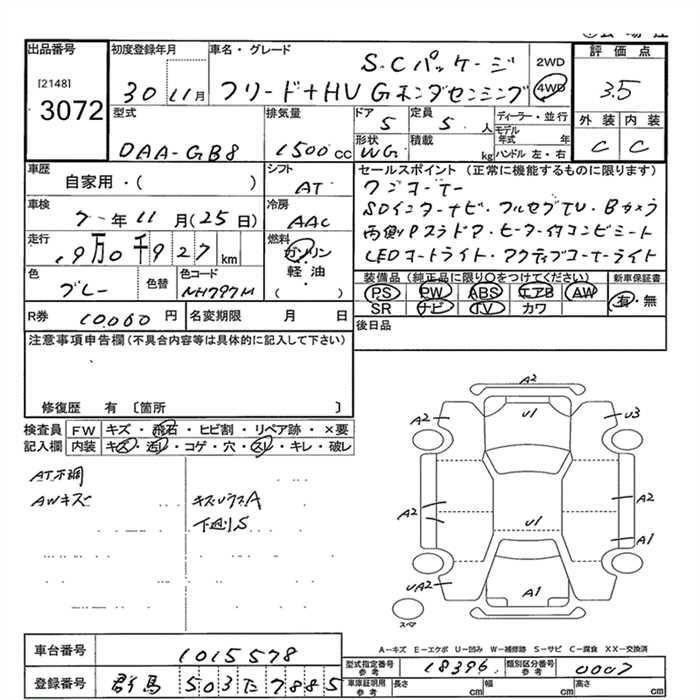 出品番号
[2148]
3072
初度登録年月
30 11月
車名・グレード
S.Cパッケージ
フリード+HV Gホンダセンシング
2WD
4WD
評価点
3.5
外装 内装
C C
型式
DAA-GB8
排気量
1500cc
ドア
5
定員
5 人
形状
WG
積載
kg
ディーラー・並行
モデル年式 年
ハンドル 左・右
車歴
自家用・( )
シフト
AT
セールスポイント (正常に機能するものに限ります)
ワンオーナー
SDインターナビ・フルセグTV・Bカメラ
両側Pスラドア・ヒーター付コンビシート
LEDオートライト・アクティブコーナーライト
車検
7年11月(25日)
冷房
AAC
走行
9万0千927km
燃料
ガソリン
軽油
( )
色
ブルー
色替
色コード
NH797M
装備品 (純正品に限り○をつけてください)
PS PW ABS エアB AW
SR ナビ TV カワ
新車保証書
有・無
R券
10,000円
名変期限 月 日
後日品
注意事項申告欄(不具合内容等は具体的に記入して下さい)
修復歴 有 〔箇所 〕
検査員記入欄
FW キズ・飛石・ヒビ割・リペア跡・×要
内装 キズ・汚レ・コゲ・穴・スレ・キレ・破レ
AT不調
AWキズ
キズウラスA
下廻りS
A2
A2 U1 U3
A2 U1 A2
A1
UA2 A1
スペア
A-キズ E-エクボ U-凹み W-補修跡 S-サビ C-腐食 XX-交換済
車台番号
1015578
登録番号
群馬 503 た 7885
型式指定番号 参考
18396
類別区分番号 参考
0007
車庫証明用 参考
長さ cm 幅 cm 高さ cm